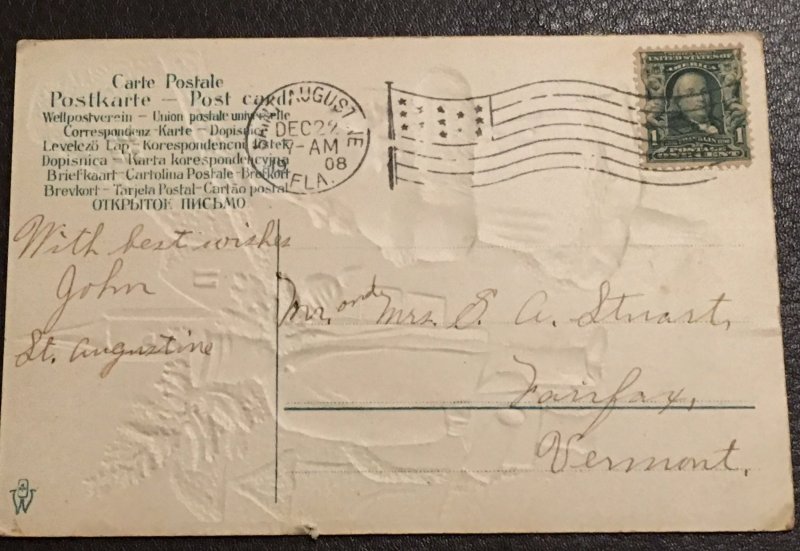 Carte Postale
Postkarte — Post card
Weltpostverein – Union postale universelle
Correspondenz-Karte – Dopisnice
Levelező Lap – Korespondenční lístek
Dopisnica – Karta korespondencyjna
Briefkaart – Cartolina Postale – Brefkort
Brevkort – Tarjeta Postal – Cartão postal
ОТКРЫТОЕ ПИСЬМО
SAINT AUGUSTINE
DEC 29
7-AM
08
FLA.
UNITED STATES OF AMERICA
1
POSTAGE
ONE CENT
With best wishes
John
St. Augustine
Mr. and Mrs. E. A. Stuart,
Fairfax,
Vermont.